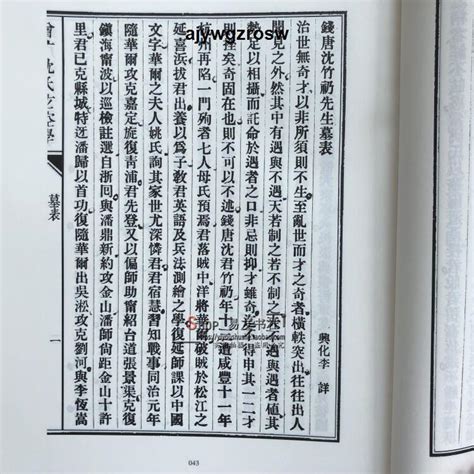 ajywgzrosw
錢唐沈竹礽先生墓表
興化李 詳
治世無奇才以非所須則不生至亂世而才之奇者橫軼突出往往出人
聞見之外然其中有遇與不遇天若制之若不制之不遇與遇者値其
勢足以相攝而託命於遇者之口非忌則抑才雖奇不得申其一二才
則矣奇固在也則不可以不述錢唐沈君竹礽年十一遭咸豐十一年
杭州再陷一門殉者七人母氏預焉君落賊中洋將華爾破賊於松江之
延喜浜拔君出養以爲子敎君英語及兵法測繪之學復延師課以中國
文字華爾之夫人姚氏詢其家世尤深憐君君宿慧習知戰事同治元年
隨華爾攻克嘉定旋復靑浦君先登又以偏師助甯紹台道張景渠克復
鎮海甯波以巡檢註選自浙囘與潘鼎新約攻金山潘師尙距金山十許
里君已克縣城特迓潘歸以首功復隨華爾出吳淞攻克劉河與李恆嵩
沈氏玄空學
墓表
一
043